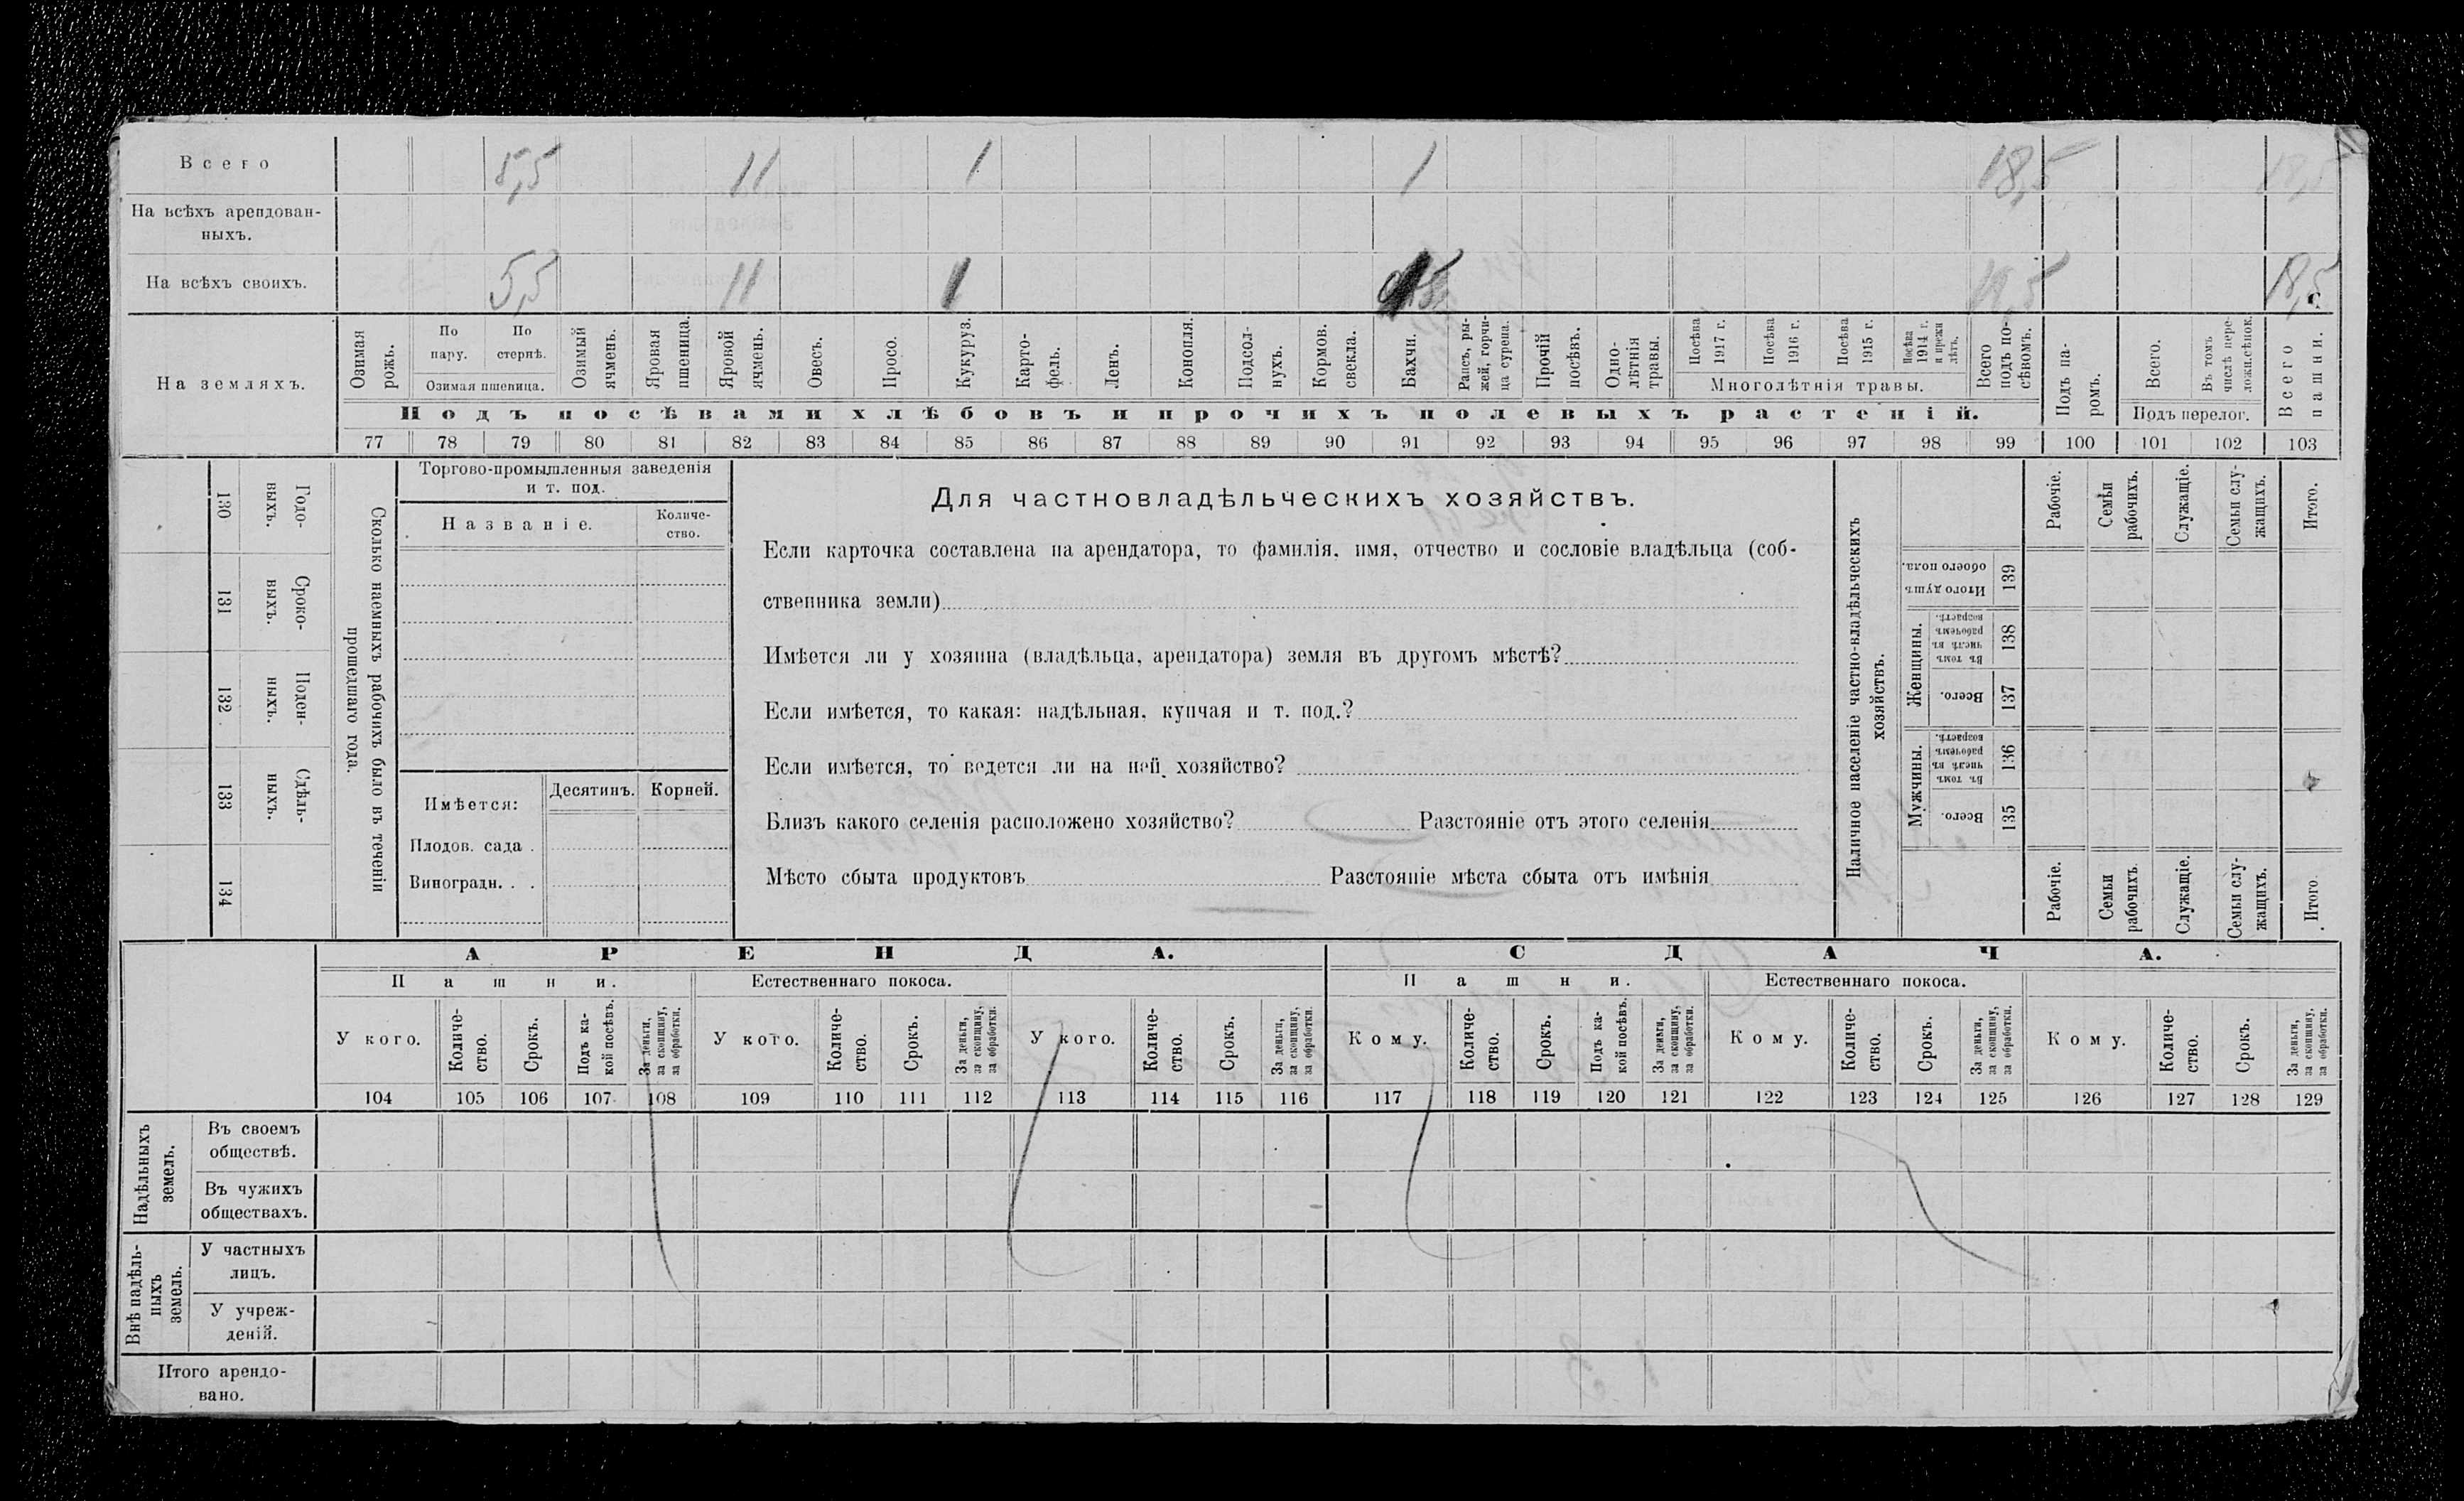 Всего 5,5 11 1 1 18,5 18,5
На всѣхъ арендован-
ныхъ.
На всѣхъ своихъ. 5,5 11 1 18,5
На земляхъ.
Озимая рожь.
По пару.
По стернѣ.
Озимая пшеница.
Озимый ячмень.
Яровая пшеница.
Яровой ячмень.
Овесъ.
Просо.
Кукуруз.
Карто-
фель.
Ленъ.
Конопля.
Подсол-
нухъ.
Кормов. свекла.
Бахчи.
Рапсъ, ры-
жей, горчи-
ца сурепа.
Прочій посѣвъ.
Одно-
лѣтнія травы.
Посѣва 1917 г.
Посѣва 1916 г.
Посѣва 1915 г.
Посѣва 1914 г. и прежн лѣтъ.
Многолѣтнія травы.
Всего подъ по-
сѣвомъ.
Подъ па-
ромъ.
Всего.
Въ томъ числѣ пере-
ложн.сѣнок.
Подъ перелог.
Всего пашни.
Подъ посѣвами хлѣбовъ и прочихъ полевыхъ растеній.
77 78 79 80 81 82 83 84 85 86 87 88 89 90 91 92 93 94 95 96 97 98 99 100 101 102 103
130 Годо-
выхъ.
131 Сроко-
ныхъ.
132 Поден-
ныхъ.
133 Сдѣль-
ныхъ.
134
Сколько наемныхъ рабочихъ было въ теченіи
прошедшаго года.
Торгово-промышленныя заведенія
и т. под.
Названіе.
Количе-
ство.
Имѣется: Десятинъ. Корней.
Плодов. сада .
Виноградн. . .
Для частновладѣльческихъ хозяйствъ.
Если карточка составлена на арендатора, то фамилія, имя, отчество и сословіе владѣльца (соб-
ственника земли)
Имѣется ли у хозяина (владѣльца, арендатора) земля въ другомъ мѣстѣ?
Если имѣется, то какая: надѣльная, купчая и т. под.?
Если имѣется, то ведется ли на ней хозяйство?
Близъ какого селенія расположено хозяйство? Разстояніе отъ этого селенія
Мѣсто сбыта продуктовъ Разстояніе мѣста сбыта отъ имѣнія
Наличное населеніе частно-владѣльческихъ
хозяйствъ.
Рабочіе.
Семьи рабочихъ.
Служащіе.
Семьи слу-
жащихъ.
Итого.
Итого душъ обоего пола. 139
Женщины.
Въ томъ числѣ въ рабочемъ возрастѣ. 138
Всего. 137
Мужчины.
Въ томъ числѣ въ рабочемъ возрастѣ. 136
Всего. 135
Рабочіе.
Семьи рабочихъ.
Служащіе.
Семьи слу-
жащихъ.
Итого.
АРЕНДА. СДАЧА.
Пашни. Естественнаго покоса. Пашни. Естественнаго покоса.
У кого.
Количе-
ство.
Срокъ.
Подъ ка-
кой посѣвъ.
За деньги, за скопщину, за обработки.
У кого.
Количе-
ство.
Срокъ.
За деньги, за скопщину, за обработки.
У кого.
Количе-
ство.
Срокъ.
За деньги, за скопщину, за обработки.
Кому.
Количе-
ство.
Срокъ.
Подъ ка-
кой посѣвъ.
За деньги, за скопщину, за обработки.
Кому.
Количе-
ство.
Срокъ.
За деньги, за скопщину, за обработки.
Кому.
Количе-
ство.
Срокъ.
За деньги, за скопщину, за обработки.
104 105 106 107 108 109 110 111 112 113 114 115 116 117 118 119 120 121 122 123 124 125 126 127 128 129
Надѣльныхъ земель.
Въ своемъ
обществѣ.
Въ чужихъ
обществахъ.
Внѣ надѣль-
ныхъ земель.
У частныхъ
лицъ.
У учреж-
деній.
Итого арендо-
вано.